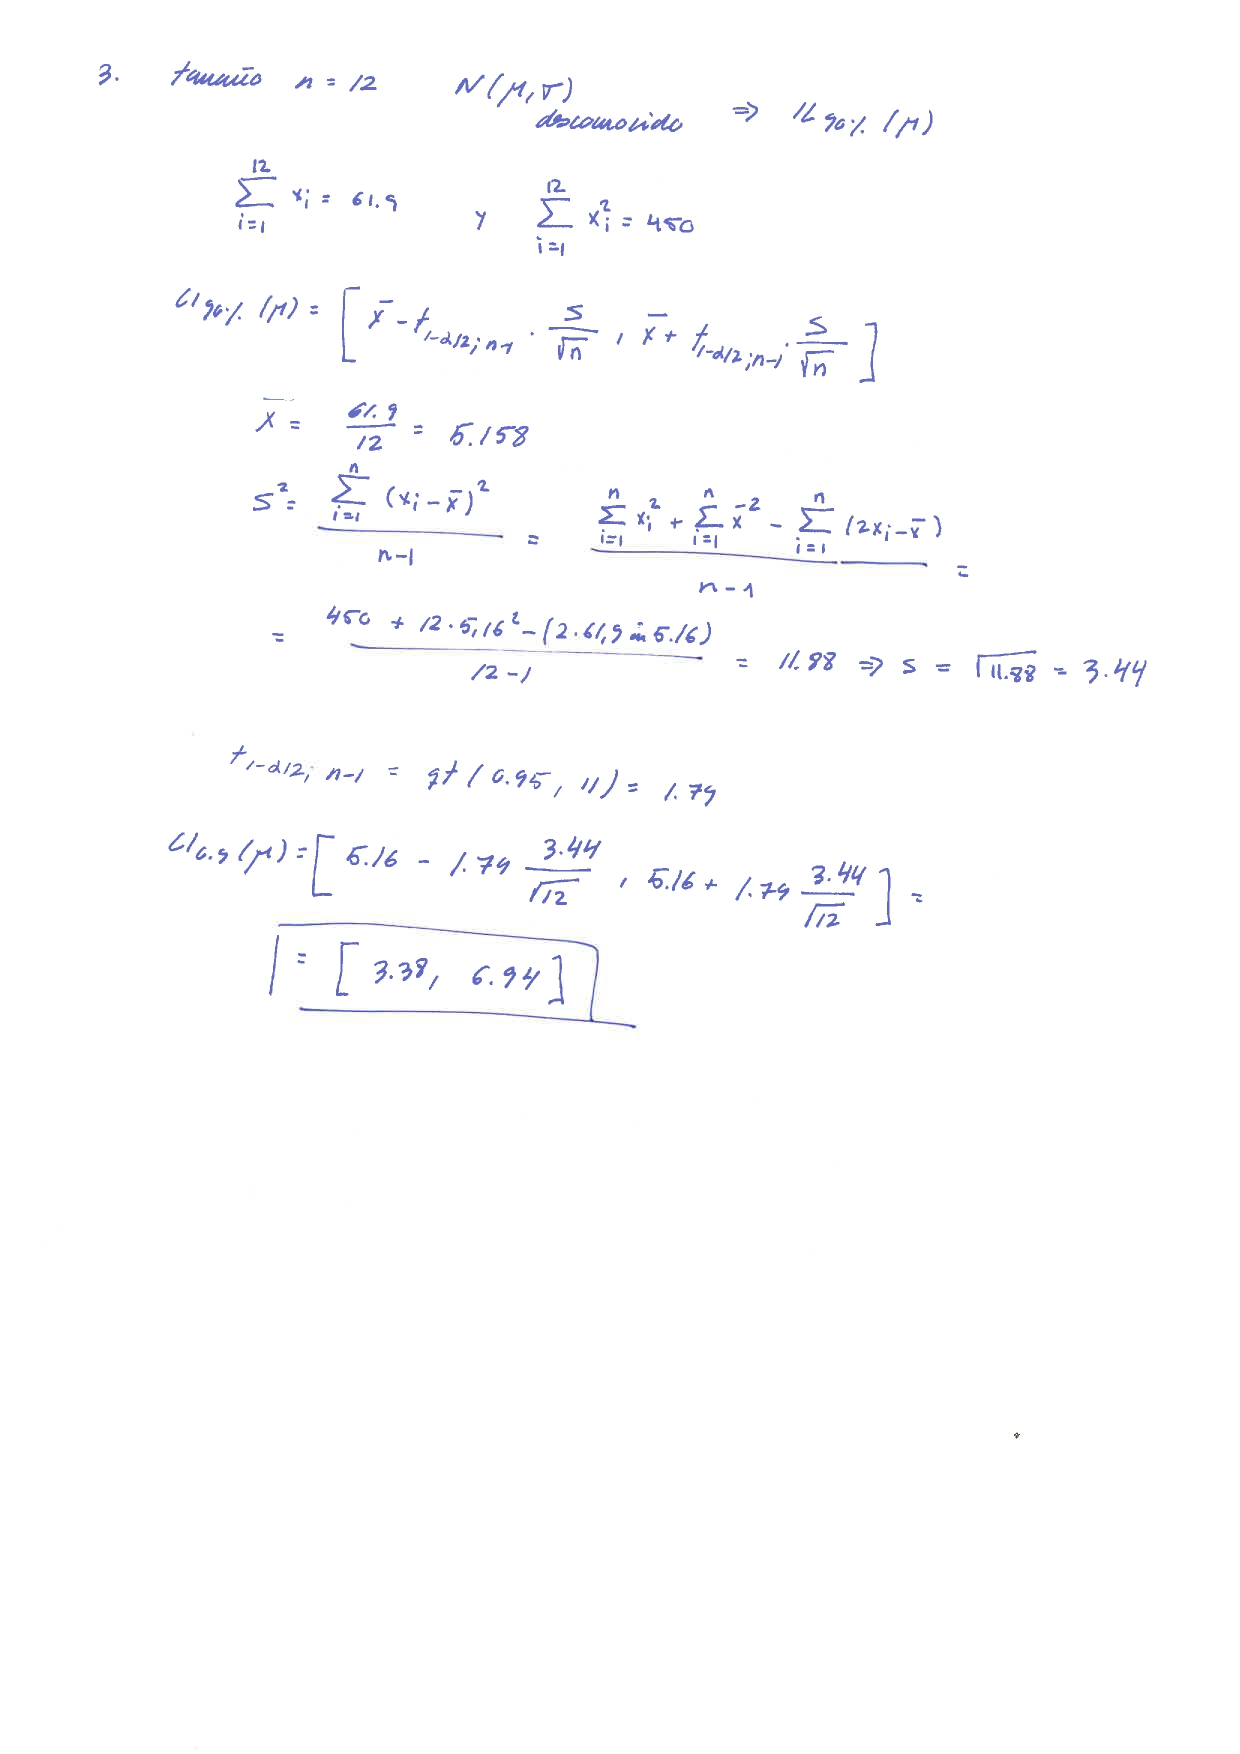 3. tamaño n = 12 N(μ,σ) desconocido ⇒ IC90% (μ)
12 ∑ i=1 xi = 61.9 y 12 ∑ i=1 xi² = 450
CI90% (μ) = [ x̄ - t1-α/2; n-1 · S/√n , x̄ + t1-α/2; n-1 · S/√n ]
X̄ = 61.9/12 = 5.158
S² = n ∑ i=1 (xi - x̄)² / n-1 = n ∑ i=1 xi² + n ∑ i=1 x̄² - n ∑ i=1 (2xi - x̄) / n-1 =
= 450 + 12 · 5,16² - (2 · 61,9 5.16) / 12-1 = 11.88 ⇒ S = √11.88 = 3.44
t1-α/2; n-1 = qt (0.95, 11) = 1.79
CI0.9 (μ) = [ 5.16 - 1.79 3.44/√12 , 5.16 + 1.79 3.44/√12 ] =
= [ 3.38, 6.94 ]